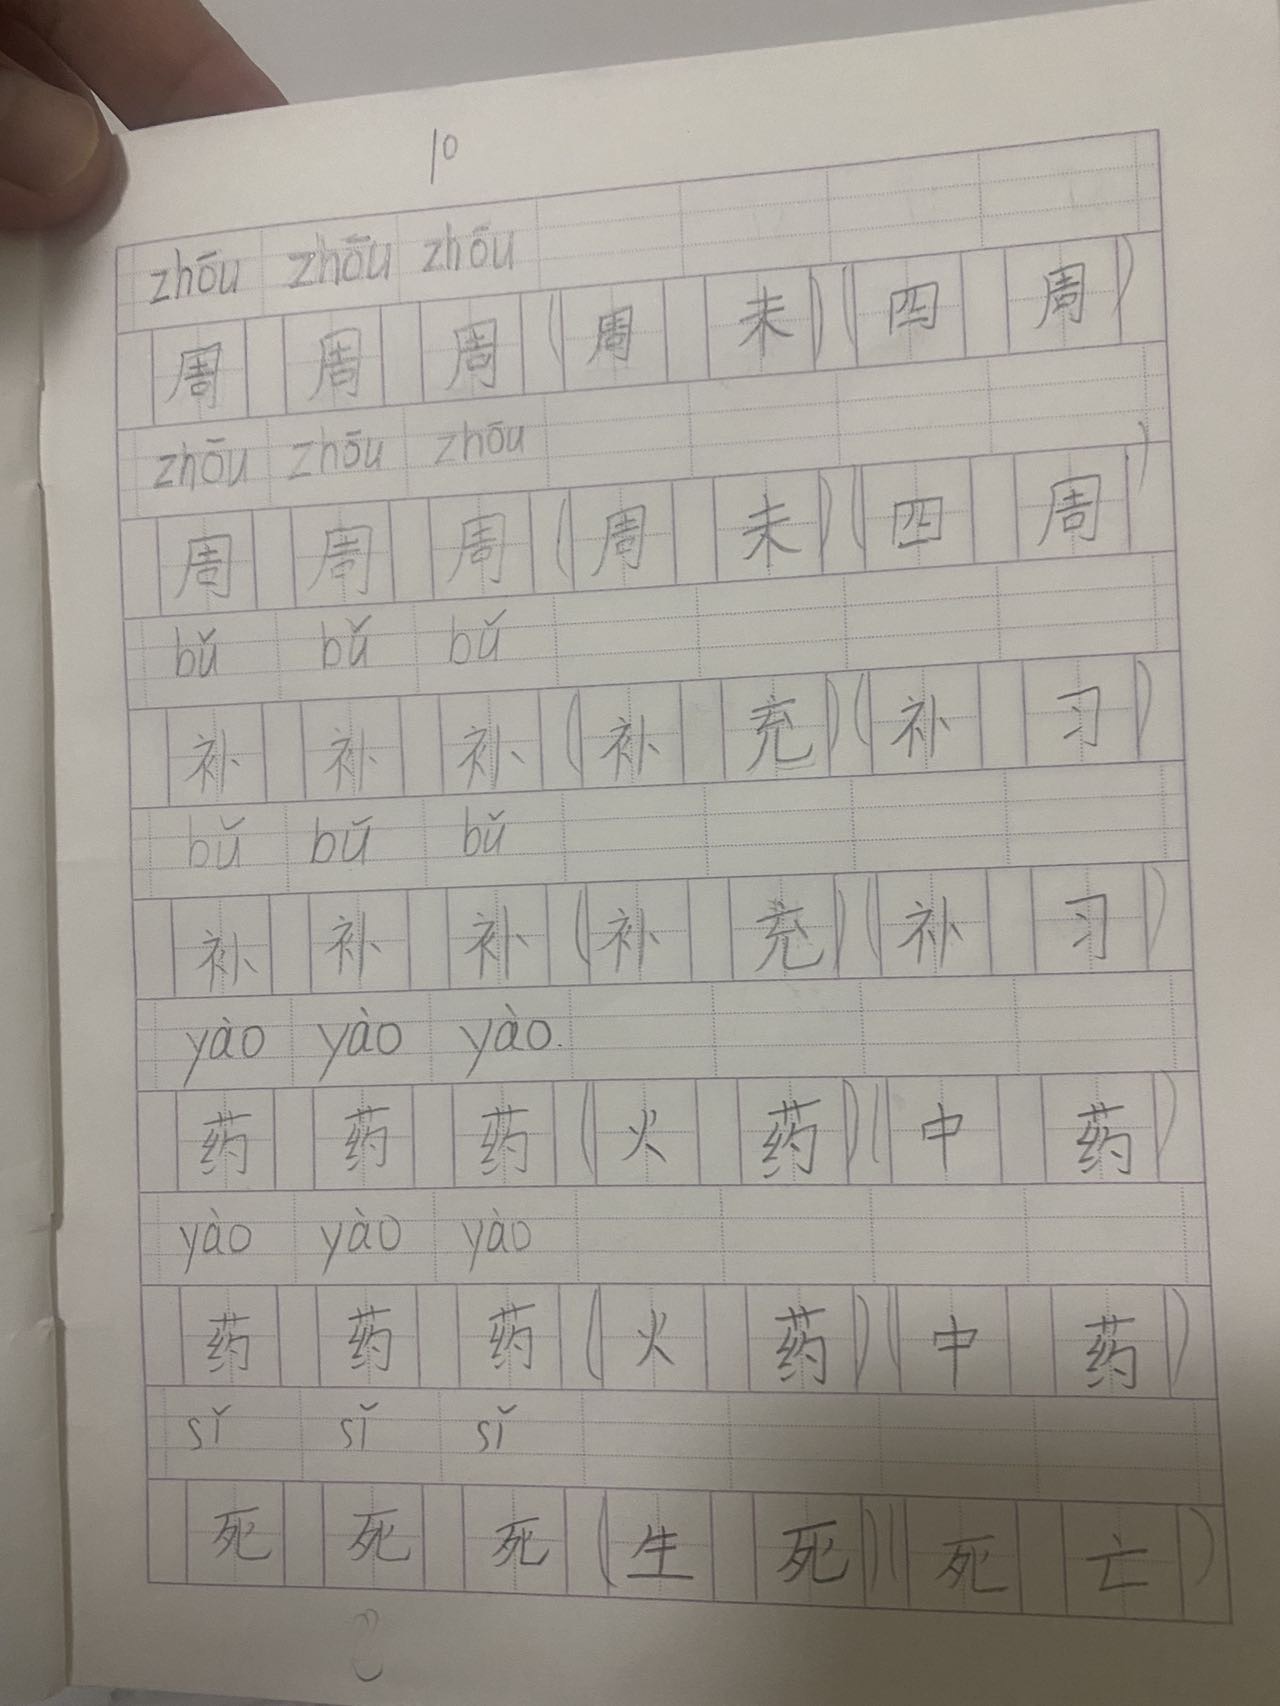 10
zhōu zhōu zhōu
周 周 周 (周 末)(四 周)
zhōu zhōu zhōu
周 周 周 (周 末)(四 周)
bǔ bǔ bǔ
补 补 补 (补 充)(补 习)
bǔ bǔ bǔ
补 补 补 (补 充)(补 习)
yào yào yào.
药 药 药 (火 药)(中 药)
yào yào yào
药 药 药 (火 药)(中 药)
sǐ sǐ sǐ
死 死 死 (生 死)(死 亡)